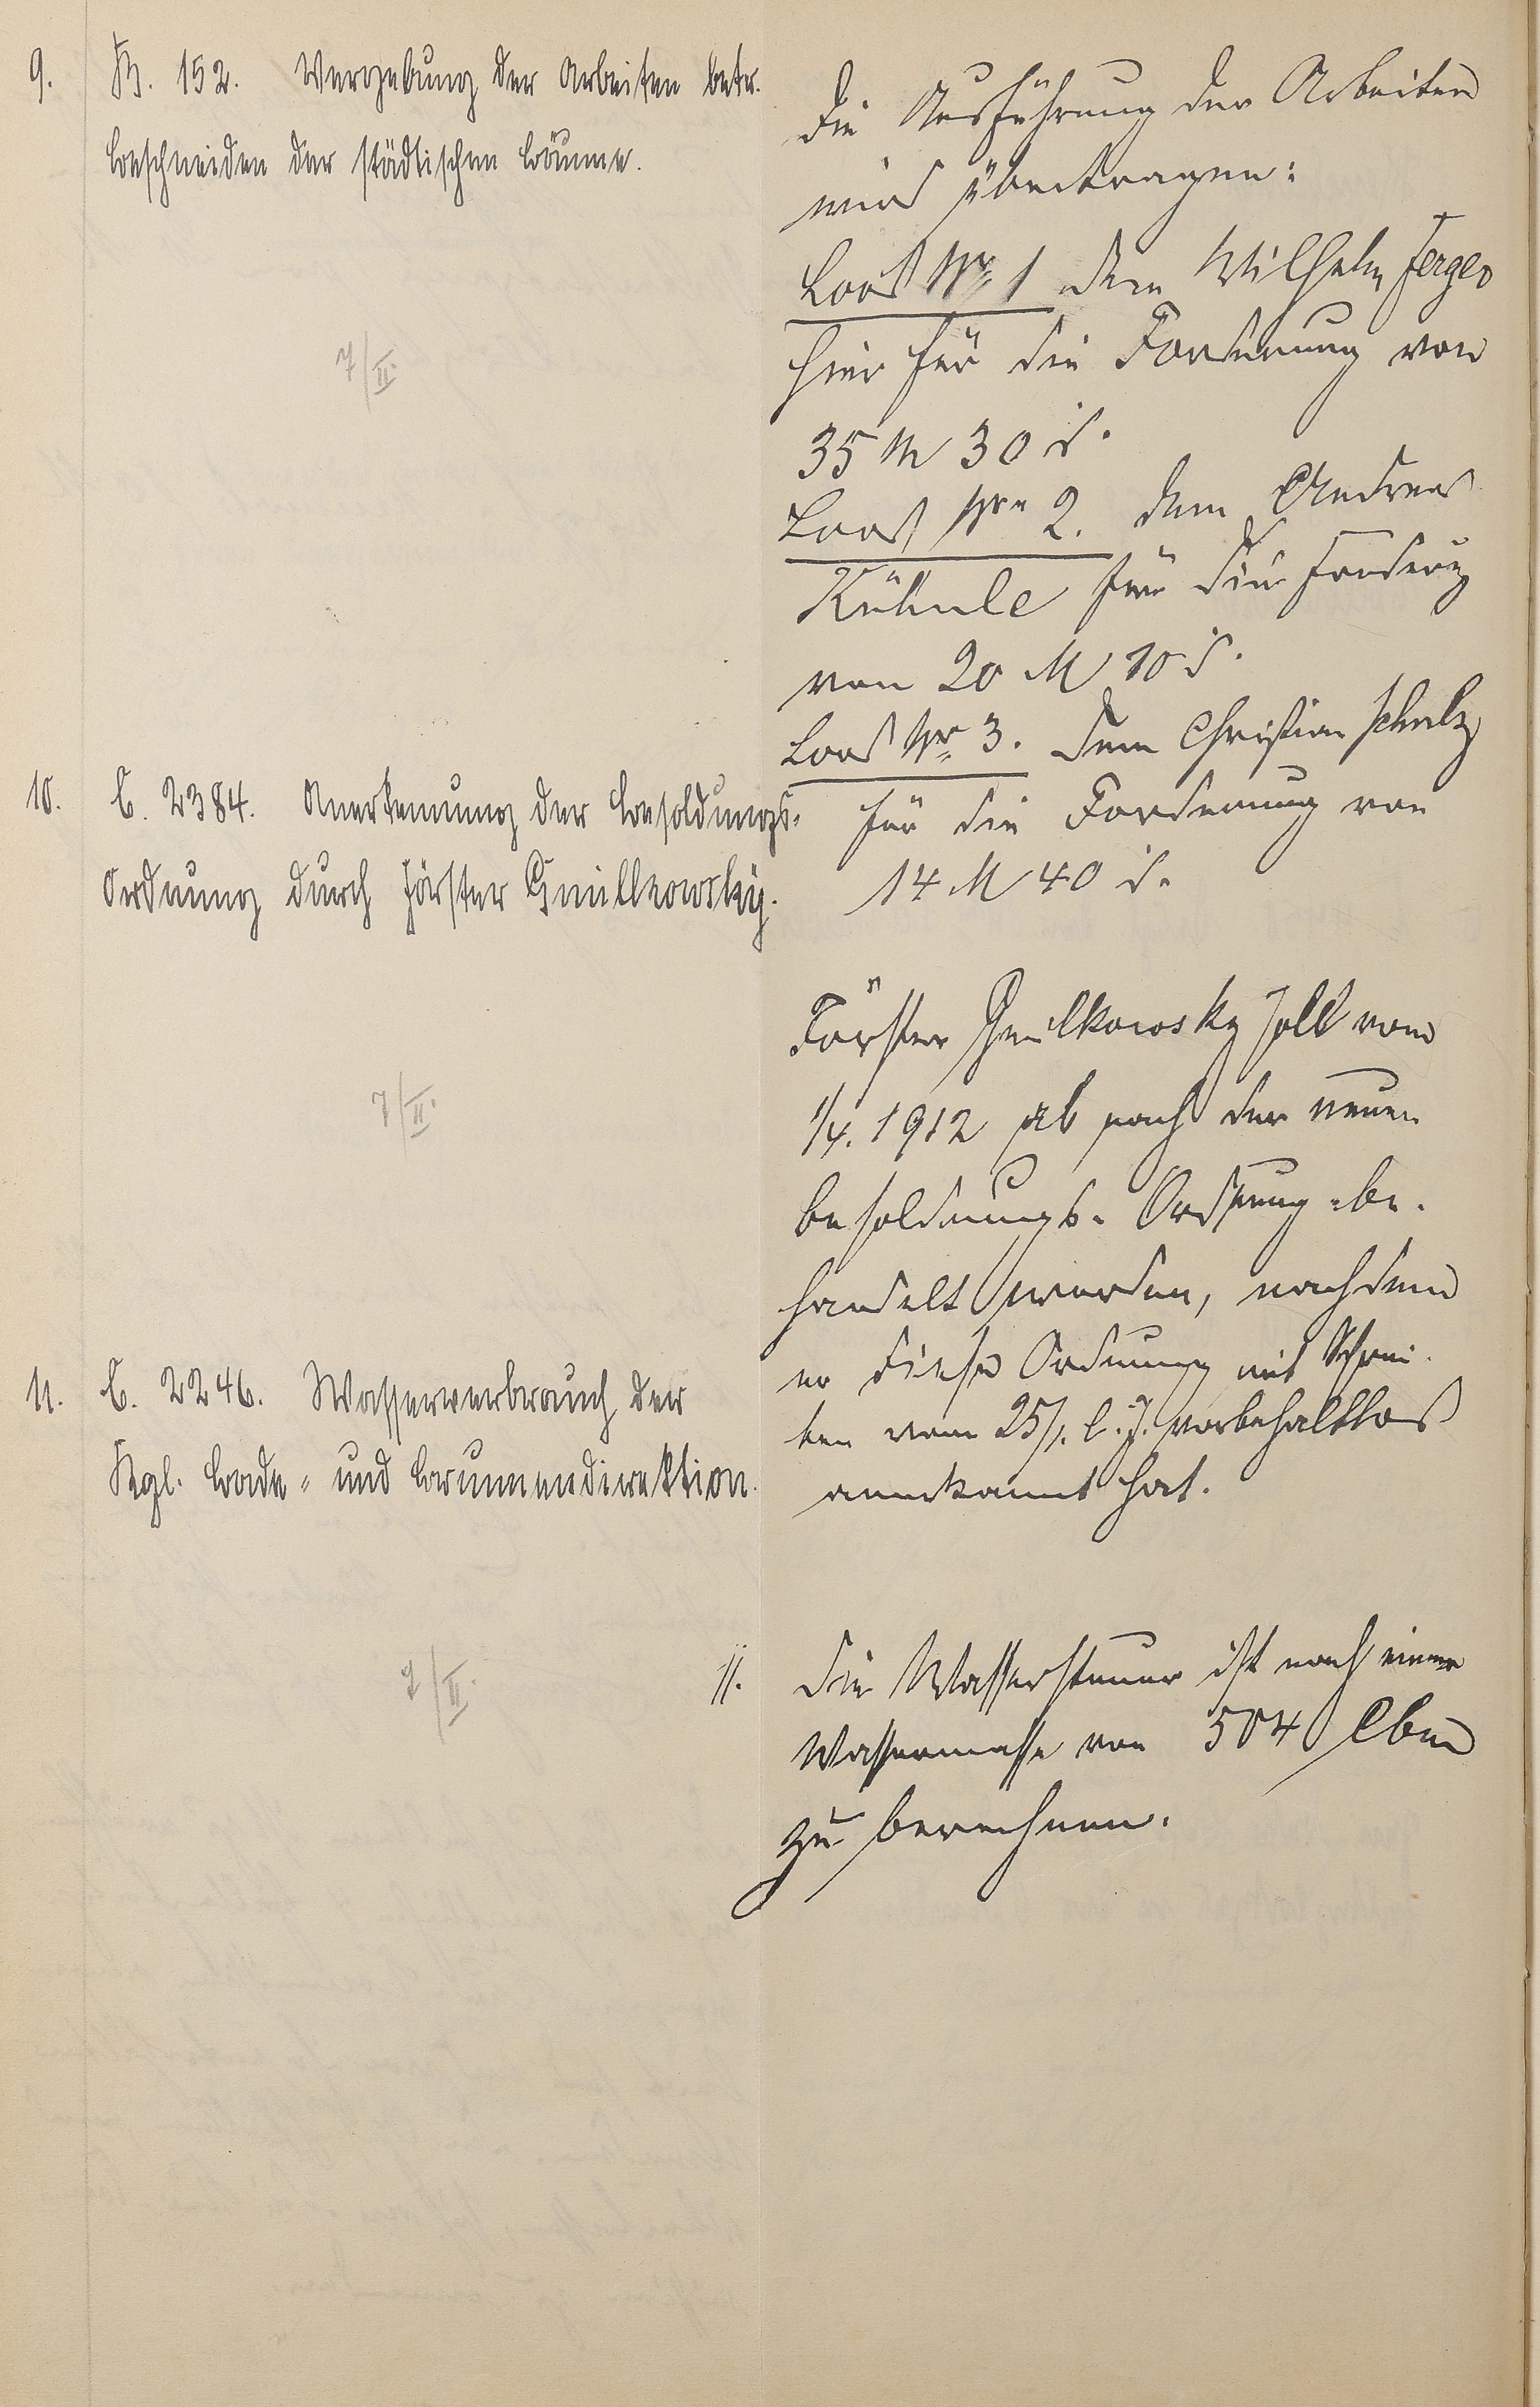 9. B. 152. Vergebung der Arbeiten betr.
Beschneiden der städtischen Bäume.
7/II.
Die Ausführung der Arbeiten
wird übertragen:
Loos Nr. 1 dem Wilhelm Ferger
hier für die Forderung von
35 M 30 d.
Loos Nr. 2. dem Andreas
Kühnle für die Forderung
von 20 M 10 d.
Loos Nr. 3. dem Christian Schulz
für die Forderung von
14 M 40 d.
10. C. 2384. Anerkennung der Besoldungs-
Ordnung durch Förster Gmilkowsky.
7/II.
Förster Gmilkowsky soll vom
1/4. 1912 ab nach der neuen
Besoldungs-Ordnung be-
handelt werden, nachdem
er diese Ordnung mit Schrei-
ben vom 25/1. l. J. vorbehaltlos
anerkannt hat.
11. C. 2246. Wasserverbrauch der
Kgl. Bade- und Brunnendirektion.
7/II.
11. Die Wassersteuer ist nach einer
Wassermasse von 504 Cbm
zu berechnen.